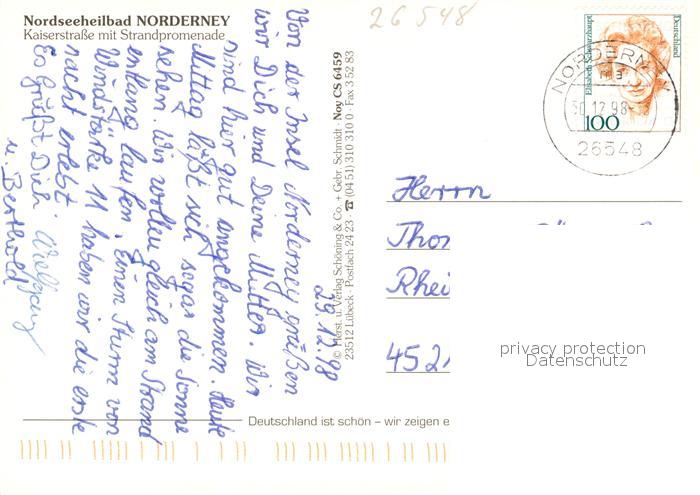 Nordseeheilbad NORDERNEY
Kaiserstraße mit Strandpromenade
26 548
29.12.98
Von der Insel Norderney grüßen
wir Dich und Deine Mutter. Wir
sind hier gut angekommen. Heute
Mittag läßt sich sogar die Sonne
sehen. Wir wollen gleich am Strand
entlang laufen. Einen Sturm von
Windstärke 11 haben wir die erste
nacht erlebt.
Es grüßt Dich Wolfgang
u. Berthold
© Herst. u. Verlag Schöning & Co. + Gebr. Schmidt · Noy CS 6459
23512 Lübeck · Postfach 24 23 · ☎ (04 51) 310 310 0 · Fax 3 52 83
Deutschland
Elisabeth Schwarzhaupt
100
NORDERNEY
30.12.98
26548
Herrn
Thor
Rhei
452
privacy protection
Datenschutz
Deutschland ist schön – wir zeigen e